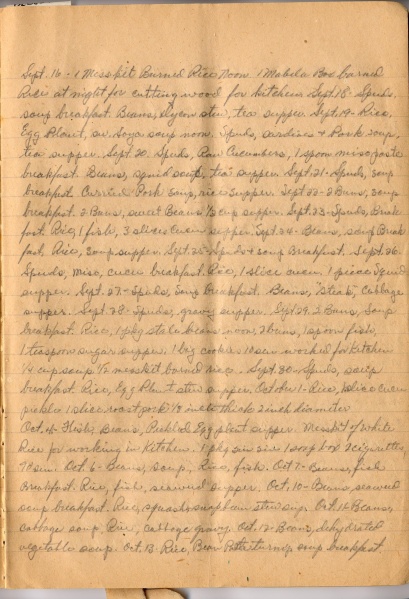 Sept. 16 - 1 Messkit Burned Rice Noon. 1 Mabela Box burned
Rice at night for cutting wood for kitchen Sept. 18- Spuds,
soup breakfast. Beans, stew, tea supper. Sept. 19- Rice,
Egg Plant, soup noon. Spuds, sardines & Pork soup,
tea supper. Sept. 20. Spuds, Raw Cucumbers, 1 spoon miso paste
breakfast. Beans, squid soup, tea supper. Sept. 21- Spuds, soup
breakfast Curried Pork soup, rice supper. Sept 22- 2 Buns, soup
breakfast. 2 Buns, sweet Beans ½ cup supper. Sept. 23- Spuds, Break
fast. Rice, 1 fish, 3 slices Cucum supper. Sept. 24- Beans, soup Break
fast. Rice, soup supper. Sept. 25- Spuds & soup Breakfast. Sept. 26-
Spuds, miso, cucum breakfast. Rice, 1 slice cucum. 1 piece squid
supper. Sept. 27- Spuds, soup breakfast. Beans, "Steak", Cabbage
supper. Sept 28- Spuds, gravy supper. Sept 29. 2 Buns, Soup
breakfast. Rice, 1 pkg stale beans noon, 2 buns, 1 spoon fish,
1 teaspoon sugar supper. 1 big cookie 10 sen worked for Kitchen
¼ cup soup ½ messkit burned rice. Sept. 30- Spuds, soup
breakfast. Rice, Egg Plant stew supper. October 1- Rice, 1 slice cucum
pickle 1 slice roast pork ⅛ inch thick 2 inch diameter
Oct. 4- Fish, Beans, Pickled Egg plant supper. Messkit of White
Rice for working in Kitchen. 1 pkg 1 soup 2 cigarettes,
Oct. 6- Beans, soup, Rice, fish. Oct 7- Beans, fish
Breakfast. Rice, fish, seaweed supper. Oct. 10- Beans, seaweed
soup breakfast. Rice, squash stew sup. Oct. Beans,
cabbage soup, Rice, cabbage gravy. Oct. 12- Beans, dehydrated
vegetable soup. Oct. 13- Rice, Bean turnip soup breakfast.